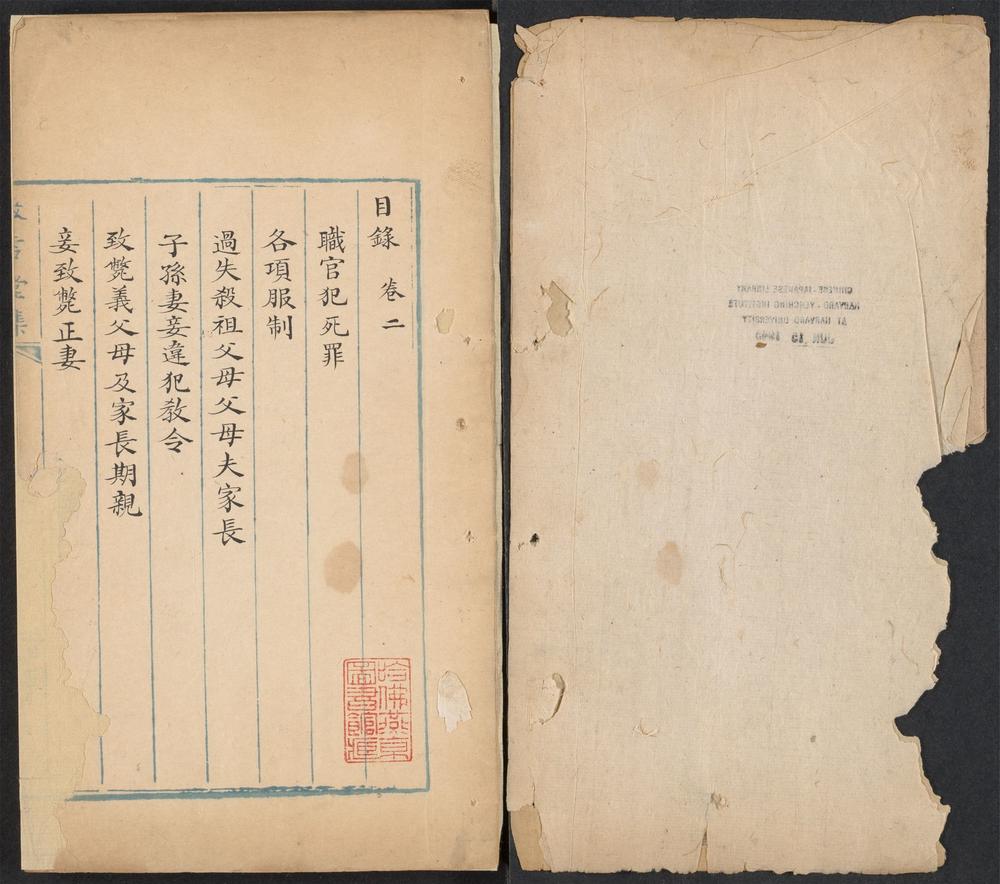 目錄 卷二
職官犯死罪
各項服制
過失殺祖父母父母夫家長
子孫妻妾違犯教令
致斃義父母及家長期親
妾致斃正妻
哈佛燕京
圖書館藏
CHINESE-JAPANESE LIBRARY
HARVARD-YENCHING INSTITUTE
AT HARVARD UNIVERSITY
JUN 13